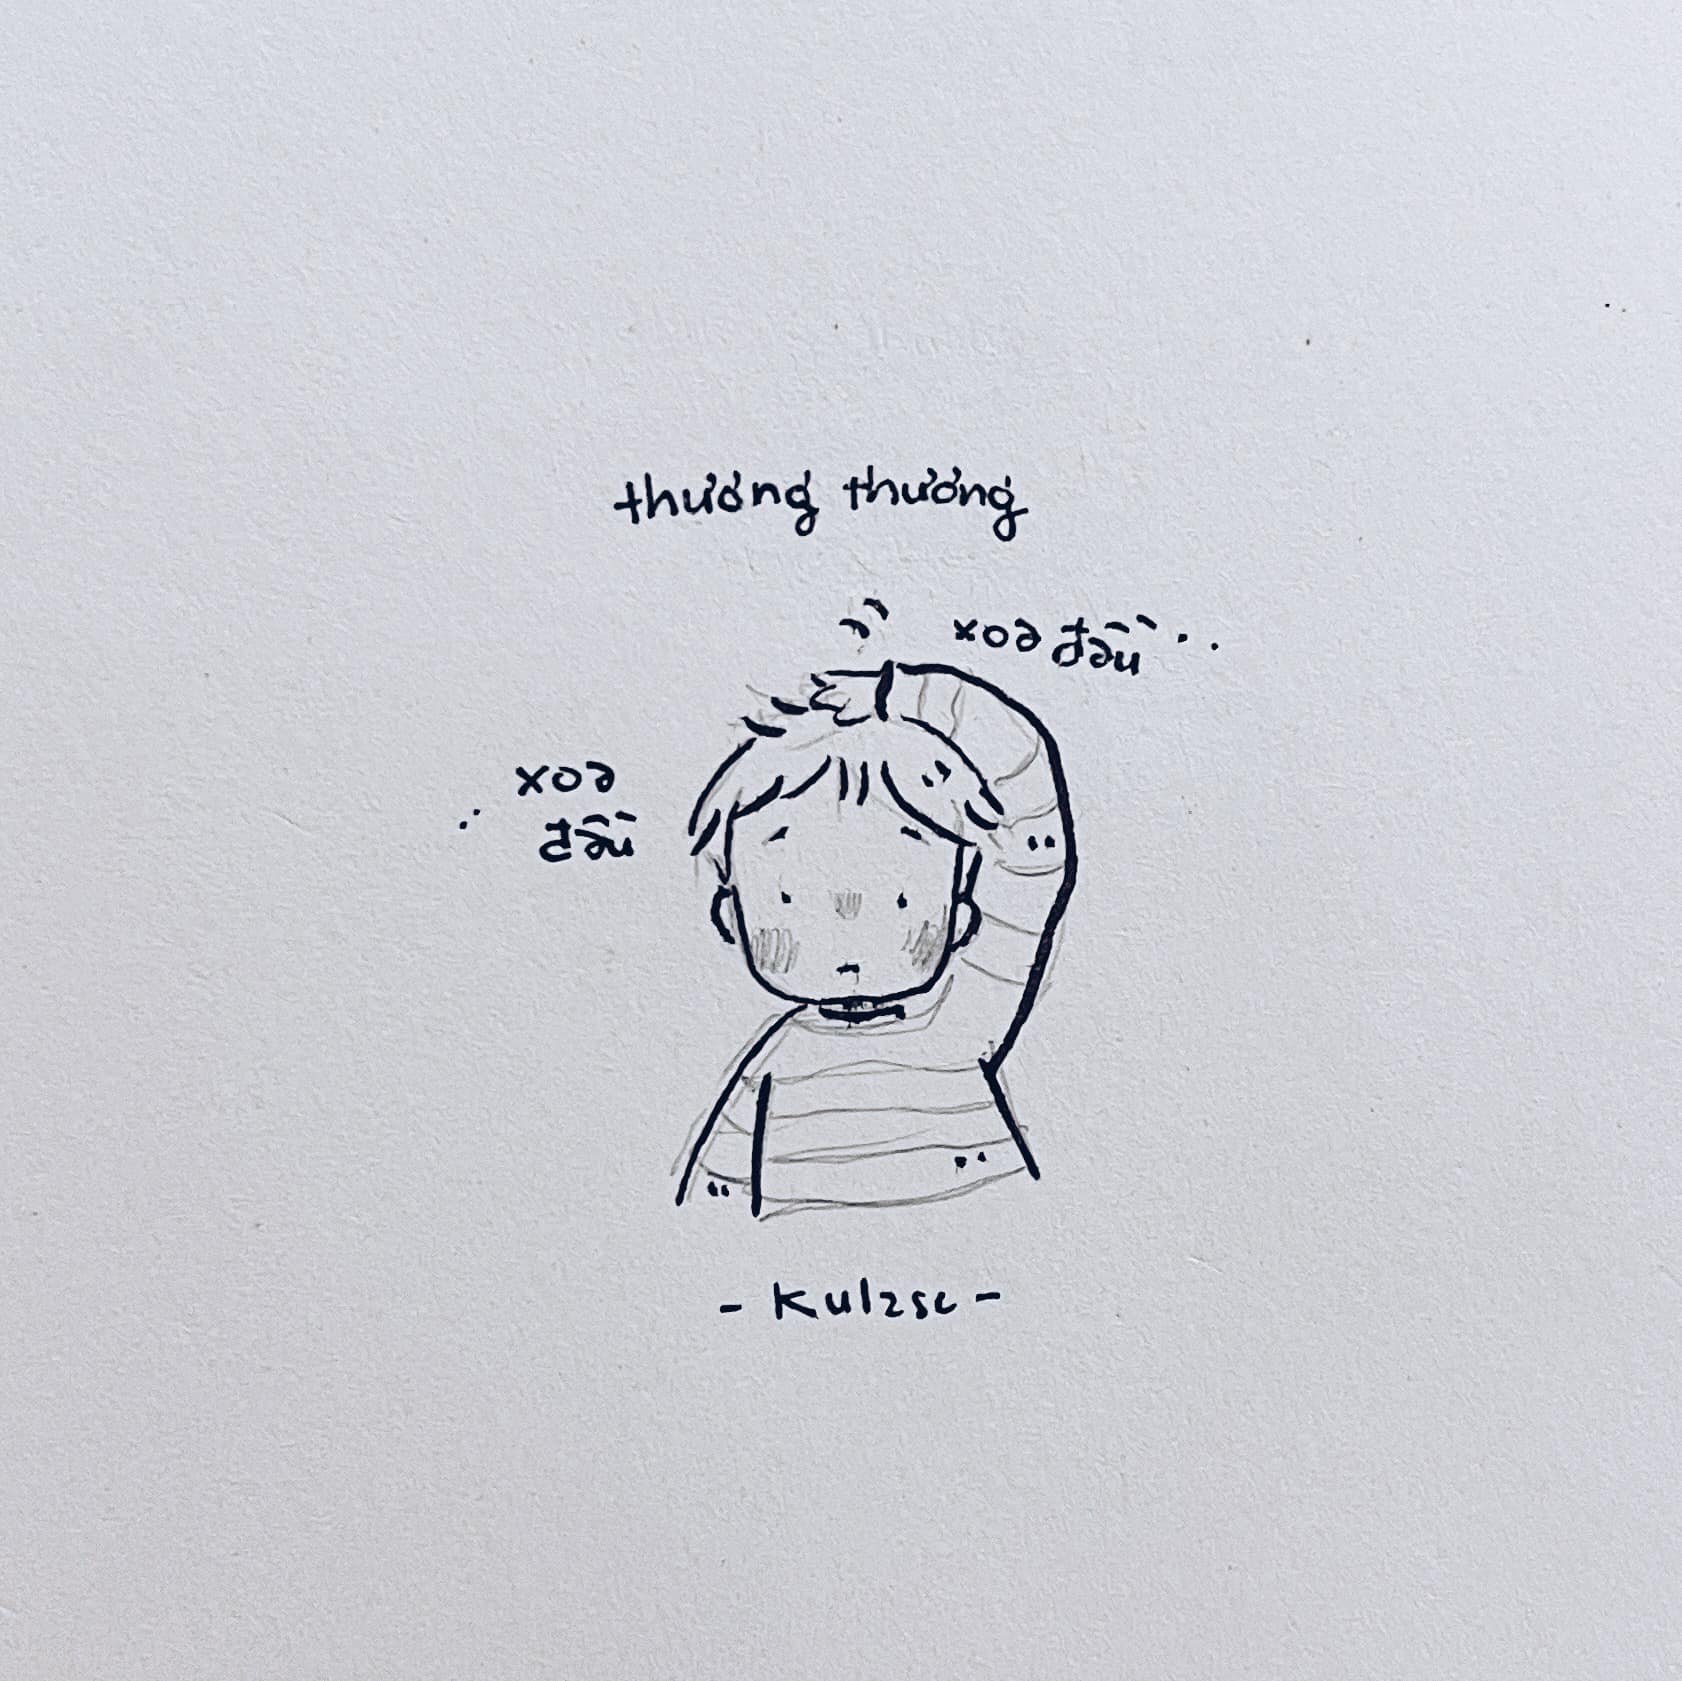 thương thương
xoa đầu
xoa
đầu
- Kulzsc -